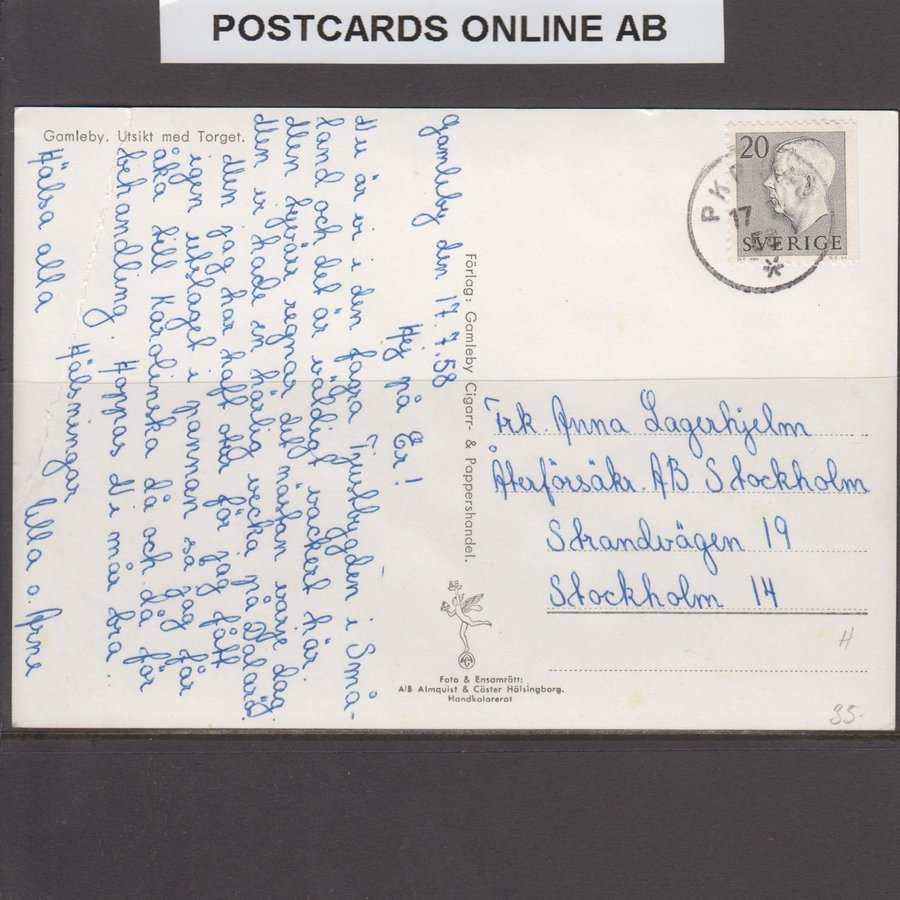 POSTCARDS ONLINE AB
Gamleby. Utsikt med Torget.
Gamleby den 17.7.58
Hej på Er!
Nu är vi i den fagra Tjustbygden i Små-
land och det är väldigt vackert här.
Men tyvärr regnar det nästan varje dag.
Men vi hade en härlig vecka på Dalarö.
Men jag har haft otur för jag fått
igen utslaget i pannan så jag får
åka till Karolinska då och då för
behandling. Hoppas Ni mår bra.
Hälsningar
Ulla o. Arne
Hälsa alla
Förlag: Gamleby Cigarr- & Pappershandel.
Foto & Ensamrätt:
A/B Almquist & Cöster Hälsingborg.
Handkolorerat
20
SVERIGE
PK
17
Frk. Anna Lagerhjelm
Återförsäkr. AB Stockholm
Strandvägen 19
Stockholm 14
H
35:-